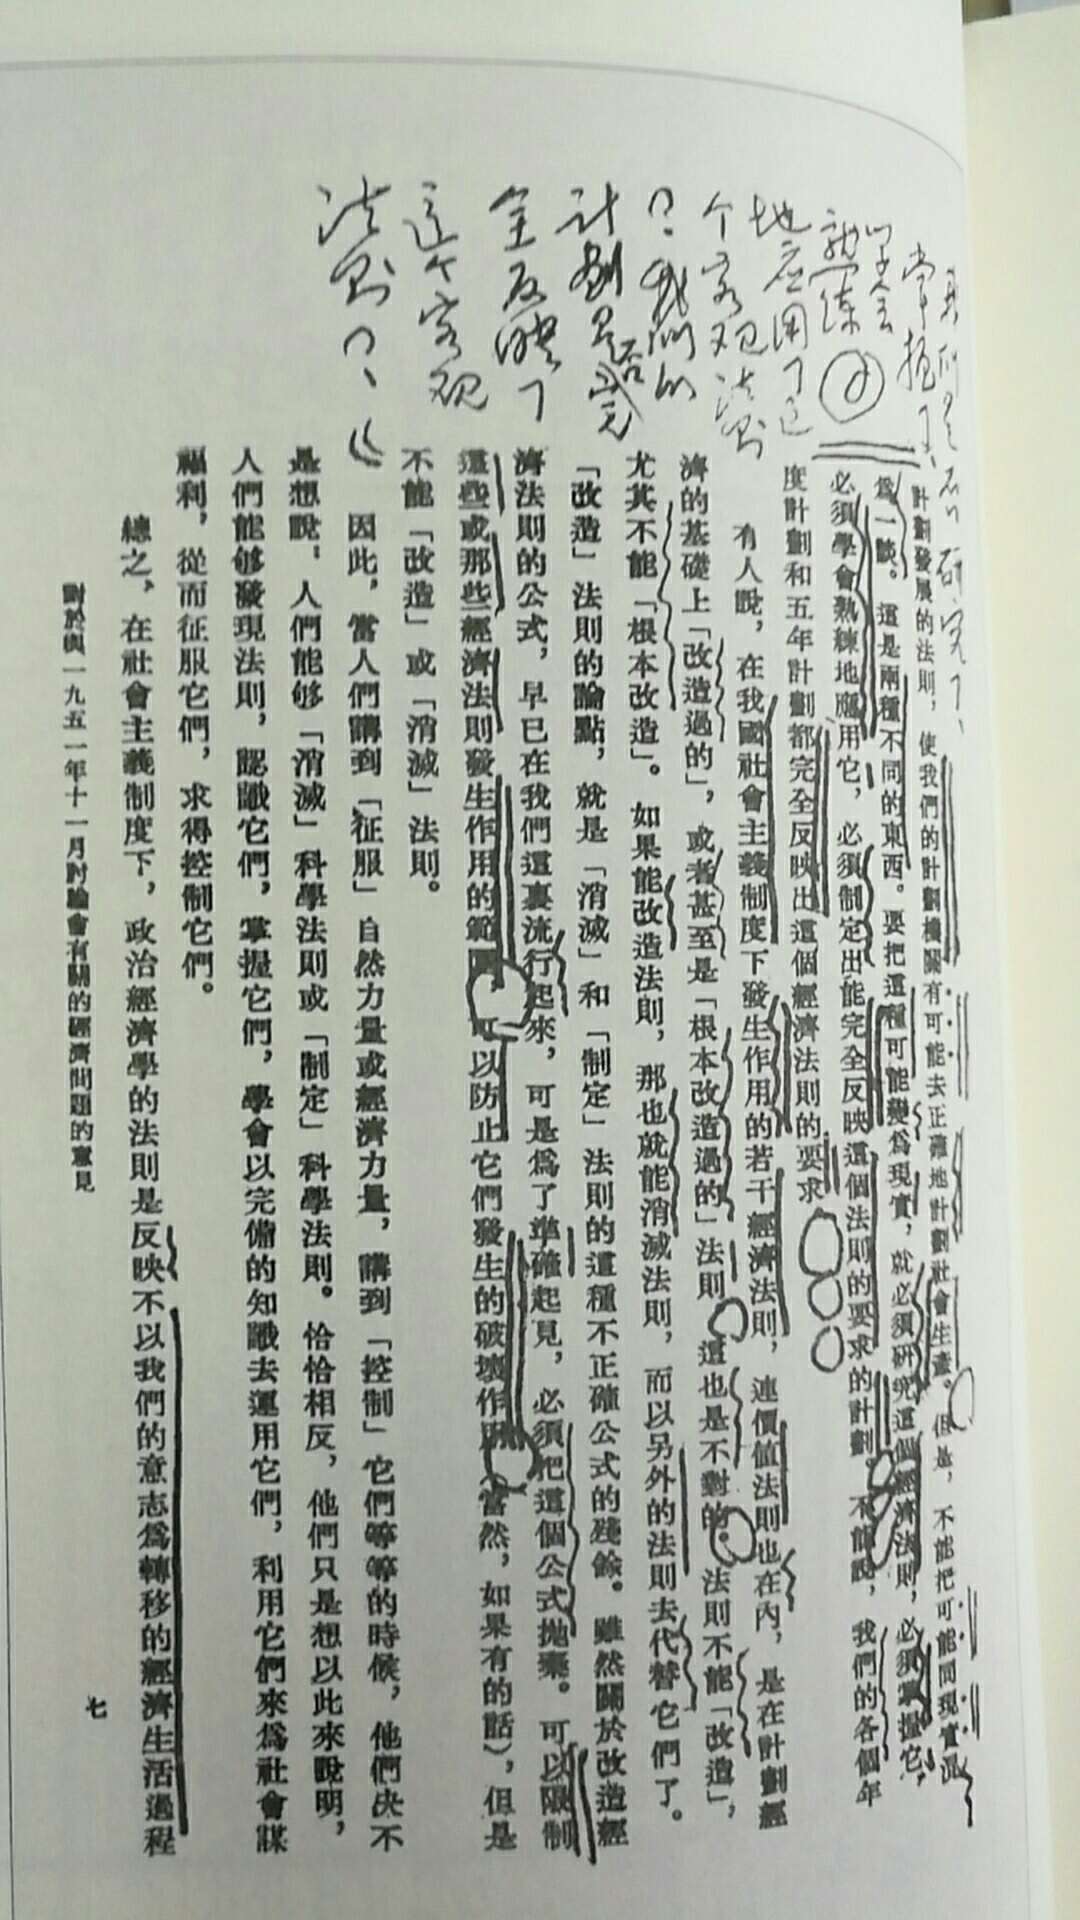 我们是否研究了、
掌握了、
学会
熟練
地应用了这
个客观法则
？我们的
计劃是否完
全反映了
这个客观
法则？
計劃發展的法則，使我們的計劃機關有可能去正確地計劃社會生產。但是，不能把可能同現實混
爲一談。這是兩種不同的東西。要把這種可能變爲現實，就必須研究這個經濟法則，必須掌握它，
必須學會熟練地應用它，必須制定出能完全反映這個法則的要求的計劃。不能說，我們的各個年
度計劃和五年計劃都完全反映出這個經濟法則的要求
有人說，在我國社會主義制度下發生作用的若干經濟法則，連價值法則也在內，是在計劃經
濟的基礎上「改造過的」，或者甚至是「根本改造過的」法則 這也是不對的。法則不能「改造」，
尤其不能「根本改造」。如果能改造法則，那也就能消滅法則，而以另外的法則去代替它們了。
「改造」法則的論點，就是「消滅」和「制定」法則的這種不正確公式的殘餘。雖然關於改造經
濟法則的公式，早已在我們這裏流行起來，可是爲了準確起見，必須把這個公式拋棄。可以限制
這些或那些經濟法則發生作用的範圍 可以防止它們發生的破壞作用 當然，如果有的話），但是
不能「改造」或「消滅」法則。
因此，當人們講到「征服」自然力量或經濟力量，講到「控制」它們等等的時候，他們決不
是想說，人們能够「消滅」科學法則或「制定」科學法則。恰恰相反，他們只是想以此來說明，
人們能够發現法則，認識它們，掌握它們，學會以完備的知識去運用它們，利用它們來爲社會謀
福利，從而征服它們，求得控制它們。
總之，在社會主義制度下，政治經濟學的法則是反映不以我們的意志爲轉移的經濟生活過程
對於與一九五一年十一月討論會有關的經濟問題的意見
七